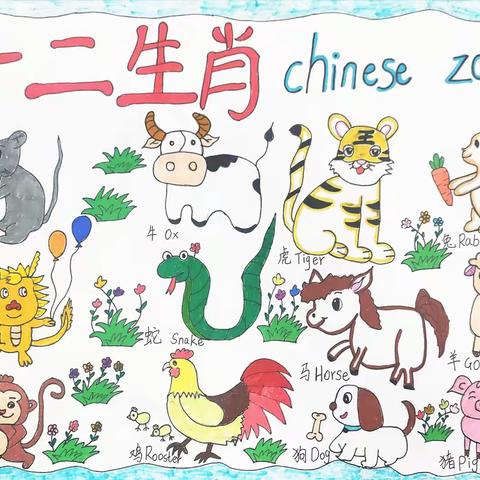 十二生肖 chinese zo
牛 Ox
虎 Tiger
兔 Rab
蛇 Snake
马 Horse
羊 Go
鸡 Rooster
狗 Dog
猪 Pig